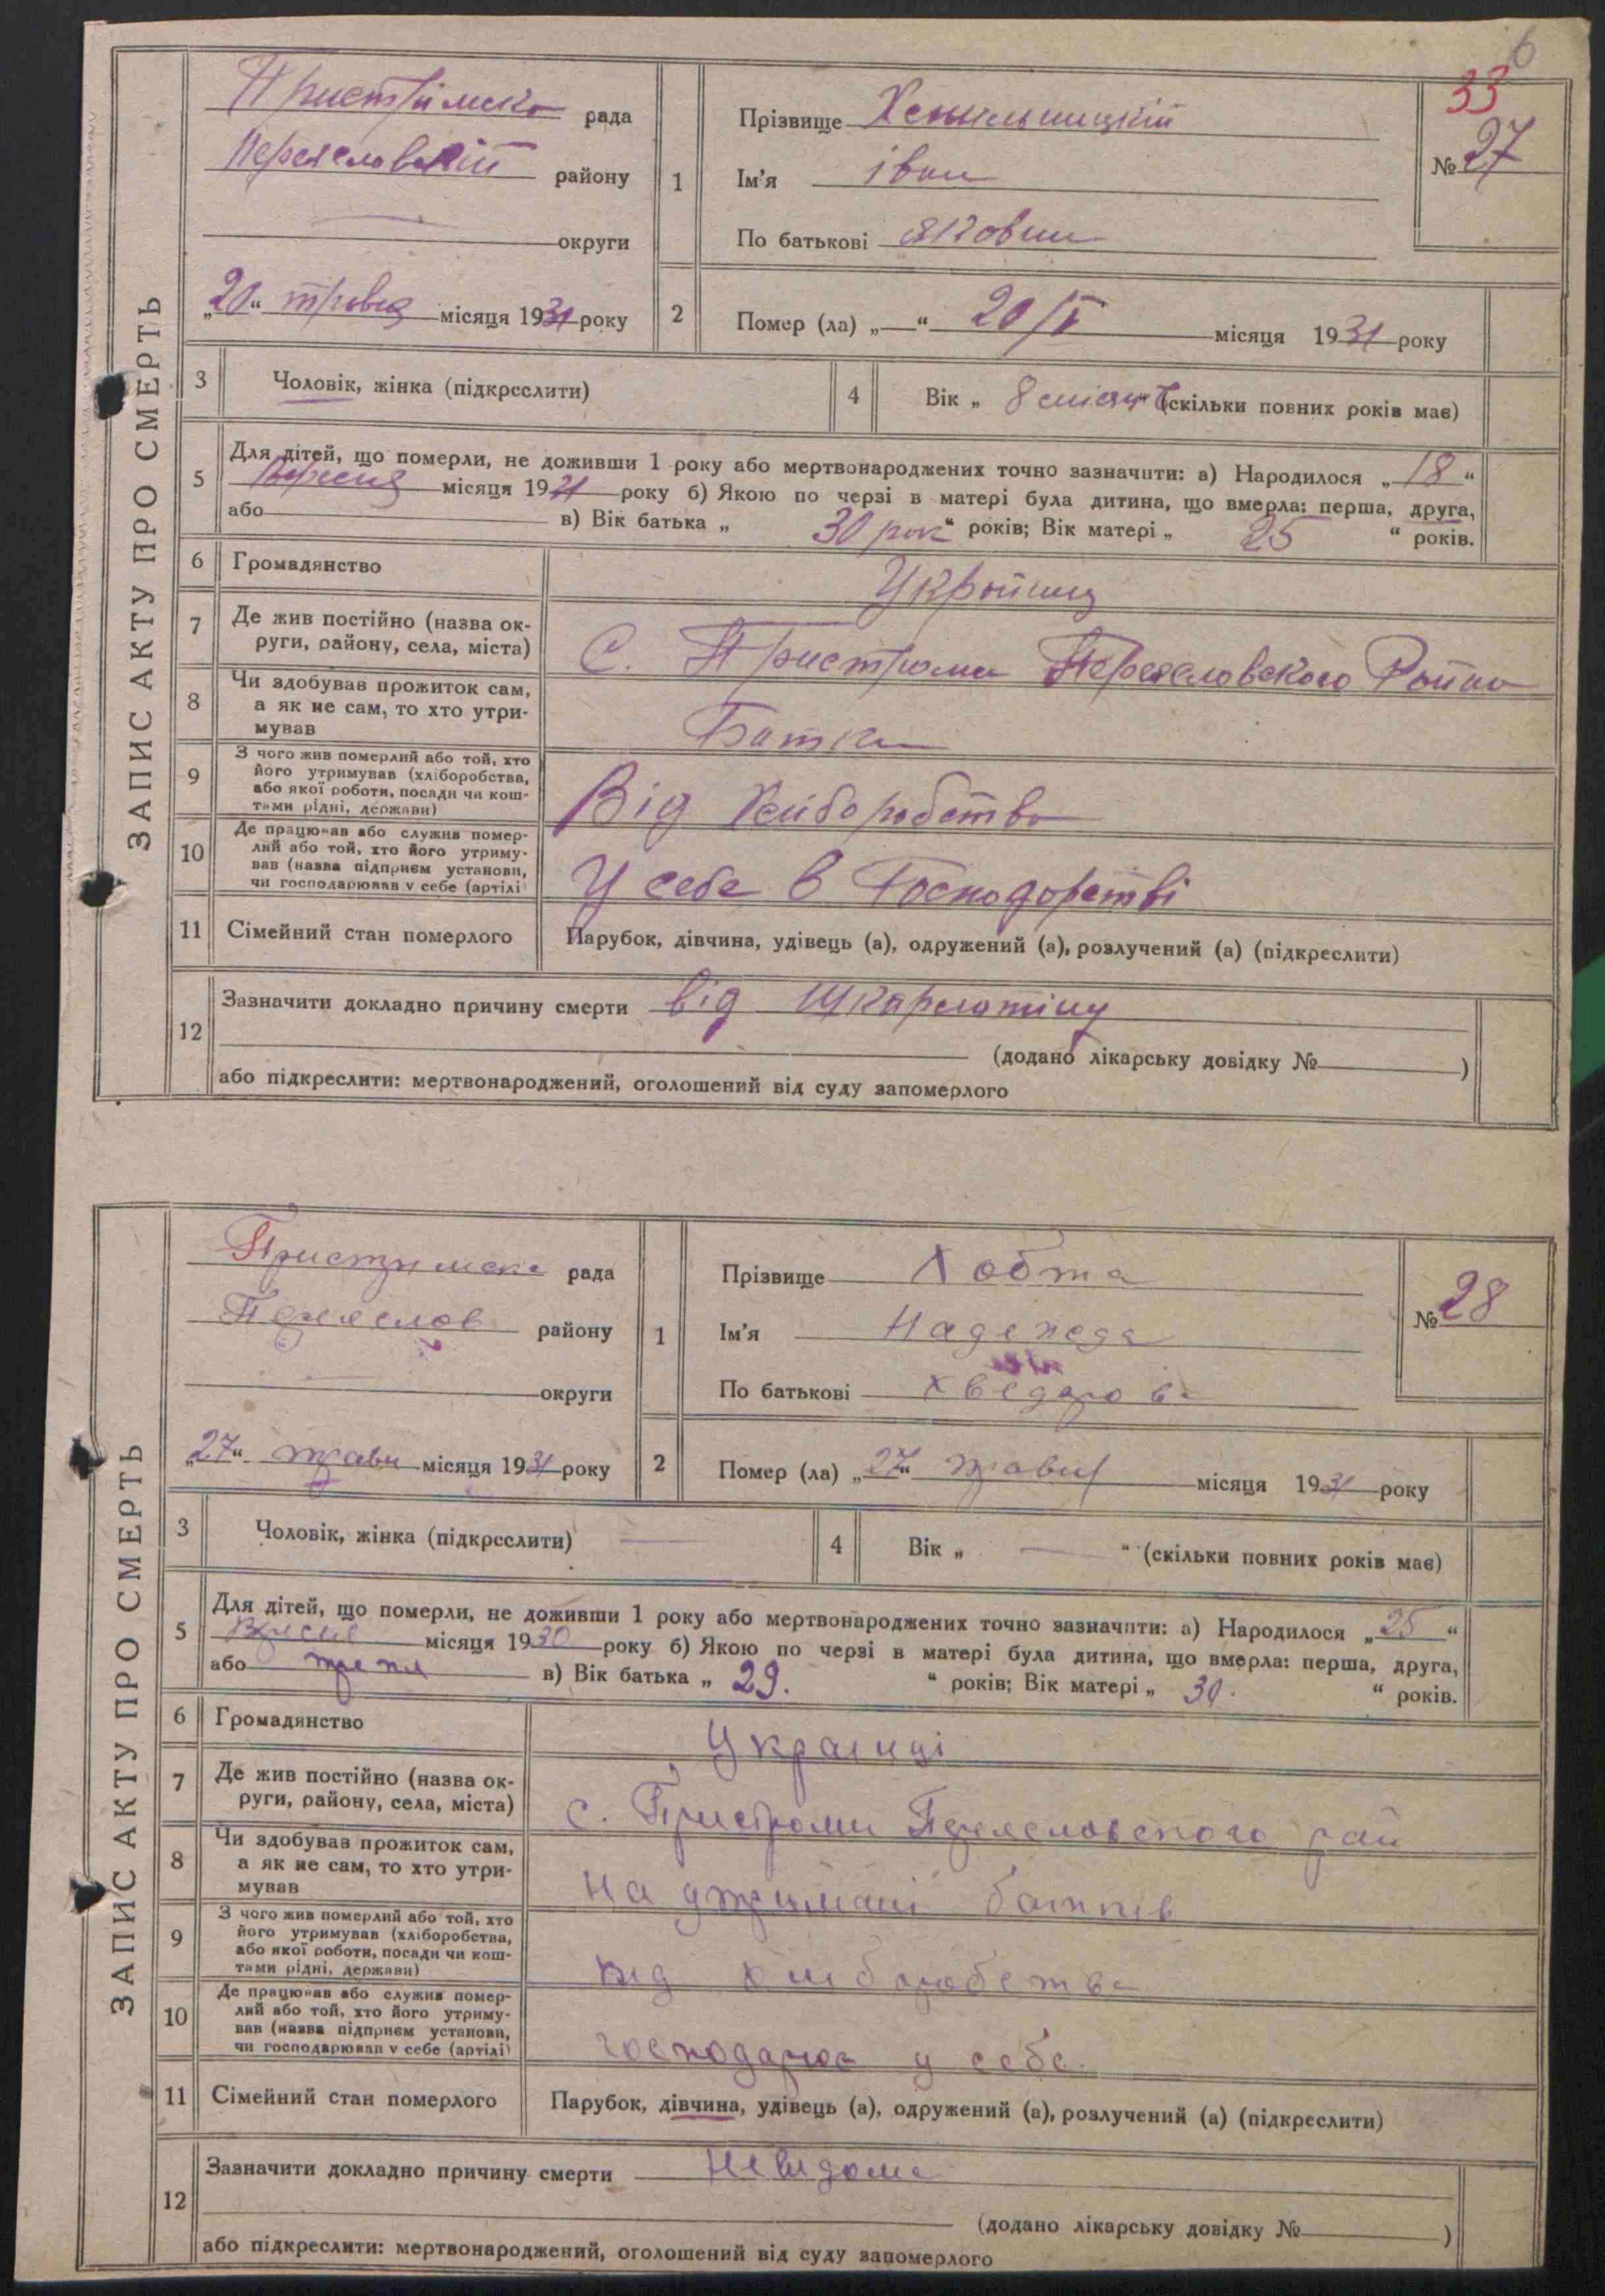 6
33
ЗАПИС АКТУ ПРО СМЕРТЬ
Пристрімська рада
Переяславский району
округи
„20“ травня місяця 1931 року
1
Прізвище
Ім'я Іван
По батькові Якович
№ 27
2
Помер (ла) „—“ 20/V місяця 1931 року
3
Чоловік, жінка (підкреслити)
4
Вік „ 8 місяців “ (скільки повних років має)
5
Для дітей, що померли, не доживши 1 року або мертвонароджених точно зазначити: а) Народилося „18“
Вересня місяця 19 року б) Якою по черзі в матері була дитина, що вмерла: перша, друга,
або в) Вік батька „ 30 рок “ років; Вік матері „ 25 “ років.
6
Громадянство
Україниц
7
Де жив постійно (назва ок-
руги, району, села, міста)
С. Пристроми Переяславского Району
8
Чи здобував прожиток сам,
а як не сам, то хто утри-
мував
Батьки
9
З чого жив померлий або той, хто
його утримував (хліборобства,
або якої роботи, посади чи кош-
тами рідні, держави)
Від Хліборобства
10
Де працював або служив помер-
лий або той, хто його утриму-
вав (назва підприєм установи,
чи господарював у себе (артілі)
У себе в Господарстві
11
Сімейний стан померлого
Парубок, дівчина, удівець (а), одружений (а), розлучений (а) (підкреслити)
12
Зазначити докладно причину смерти від Шкарлатіну
(додано лікарську довідку № )
або підкреслити: мертвонароджений, оголошений від суду запомерлого
ЗАПИС АКТУ ПРО СМЕРТЬ
Пристримська рада
Переяслов району
округи
„27“ травня місяця 1931 року
1
Прізвище Хобта
Ім'я Надежда
По батькові Хведоровна
№ 28
2
Помер (ла) „27“ травня місяця 1931 року
3
Чоловік, жінка (підкреслити)
4
Вік „ — “ (скільки повних років має)
5
Для дітей, що померли, не доживши 1 року або мертвонароджених точно зазначити: а) Народилося „25“
Вересня місяця 1930 року б) Якою по черзі в матері була дитина, що вмерла: перша, друга,
або третя в) Вік батька „ 29. “ років; Вік матері „ 30. “ років.
6
Громадянство
Украинці
7
Де жив постійно (назва ок-
руги, району, села, міста)
с. Пристроми Переясловского рай
8
Чи здобував прожиток сам,
а як не сам, то хто утри-
мував
на утримані батьків
9
З чого жив померлий або той, хто
його утримував (хліборобства,
або якої роботи, посади чи кош-
тами рідні, держави)
від хліборобства
10
Де працював або служив помер-
лий або той, хто його утриму-
вав (назва підприєм установи,
чи господарював у себе (артілі)
господарює у себе.
11
Сімейний стан померлого
Парубок, дівчина, удівець (а), одружений (а), розлучений (а) (підкреслити)
12
Зазначити докладно причину смерти Невидома
(додано лікарську довідку № )
або підкреслити: мертвонароджений, оголошений від суду запомерлого